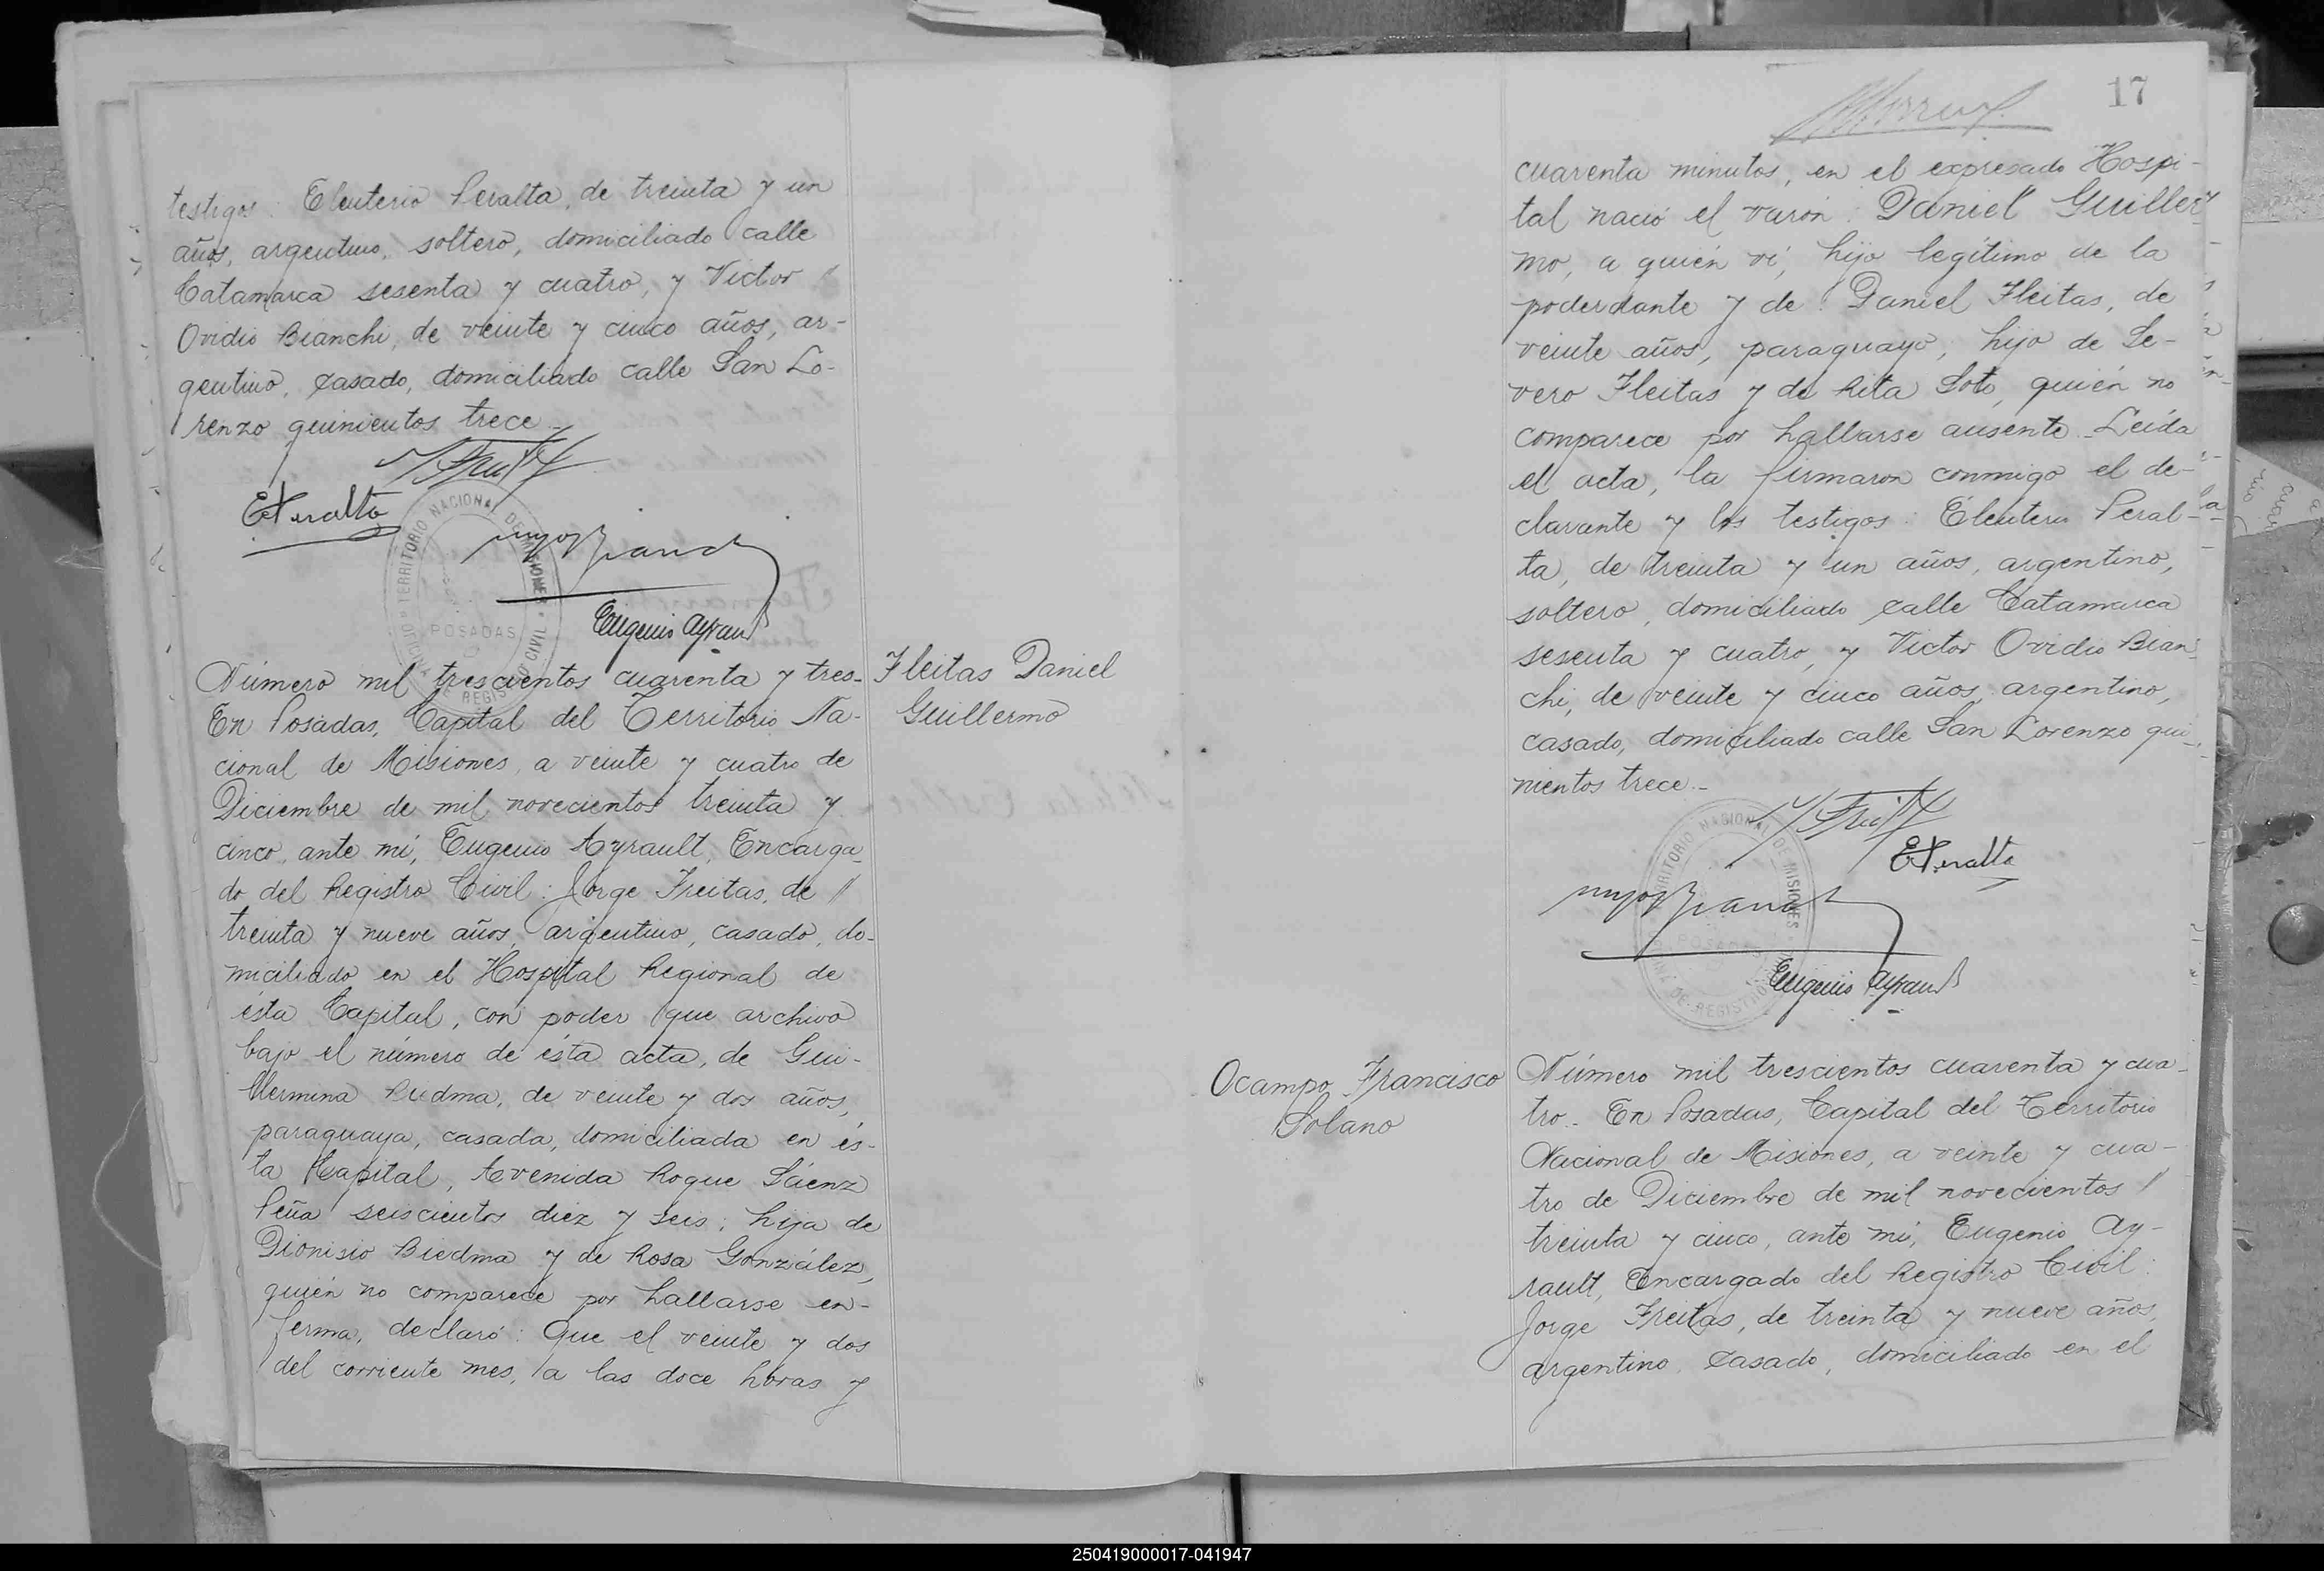 testigos: Eleuterio Peralta, de treinta y un
años, argentino, soltero, domiciliado calle
Catamarca sesenta y cuatro, y Victor "
Ovidio Bianchi, de veinte y cinco años, ar-
gentino, casado, domiciliado calle San Lo-
renzo quinientos trece.-
E Peralta
TERRITORIO NACIONAL DE MISIONES
POSADAS
OFICINA DE REGISTRO CIVIL
Eugenio Ayrault
Número mil trescientos cuarenta y tres-
En Posadas, Capital del Territorio Na-
cional de Misiones, a veinte y cuatro de
Diciembre de mil novecientos treinta y
cinco, ante mí, Eugenio Ayrault, Encarga-
do del Registro Civil: Jorge Freitas, de "
treinta y nueve años, argentino, casado, do-
miciliado en el Hospital Regional de
ésta Capital, con poder que archivo
bajo el número de ésta acta, de Gui-
llermina Biedma, de veinte y dos años,
paraguaya, casada, domiciliada en és-
ta Capital, Avenida Roque Sáenz
Peña seiscientos diez y seis; hija de
Dionisio Biedma y de Rosa González,
quién no comparece por hallarse en-
ferma, declaró: Que el veinte y dos
del corriente mes, a las doce horas y
Fleitas Daniel
Guillermo
17
cuarenta minutos, en el expresado Hospi-
tal nació el varón: Daniel Guiller-
mo, a quién ví, hijo legítimo de la
poderdante y de: Daniel Fleitas, de
veinte años, paraguayo, hijo de Se-
vero Fleitas y de Rita Soto, quién no
comparece por hallarse ausente.-Leída
el acta, la firmaron conmigo el de-
clarante y los testigos: Eleuterio Peral-
ta, de treinta y un años, argentino,
soltero, domiciliado calle Catamarca
sesenta y cuatro, y Victor Ovidio Bian-
chi, de veinte y cinco años, argentino,
casado, domiciliado calle San Lorenzo qui-
nientos trece.-
E Peralta
TERRITORIO NACIONAL DE MISIONES
POSADAS
OFICINA DE REGISTRO CIVIL
Eugenio Ayrault
Ocampo Francisco
Solano
Número mil trescientos cuarenta y cua-
tro.- En Posadas, Capital del Territorio
Nacional de Misiones, a veinte y cua-
tro de Diciembre de mil novecientos "
treinta y cinco, ante mí, Eugenio Ay-
rault, Encargado del Registro Civil:
Jorge Freitas, de treinta y nueve años,
argentino, casado, domiciliado en el
250419000017-041947